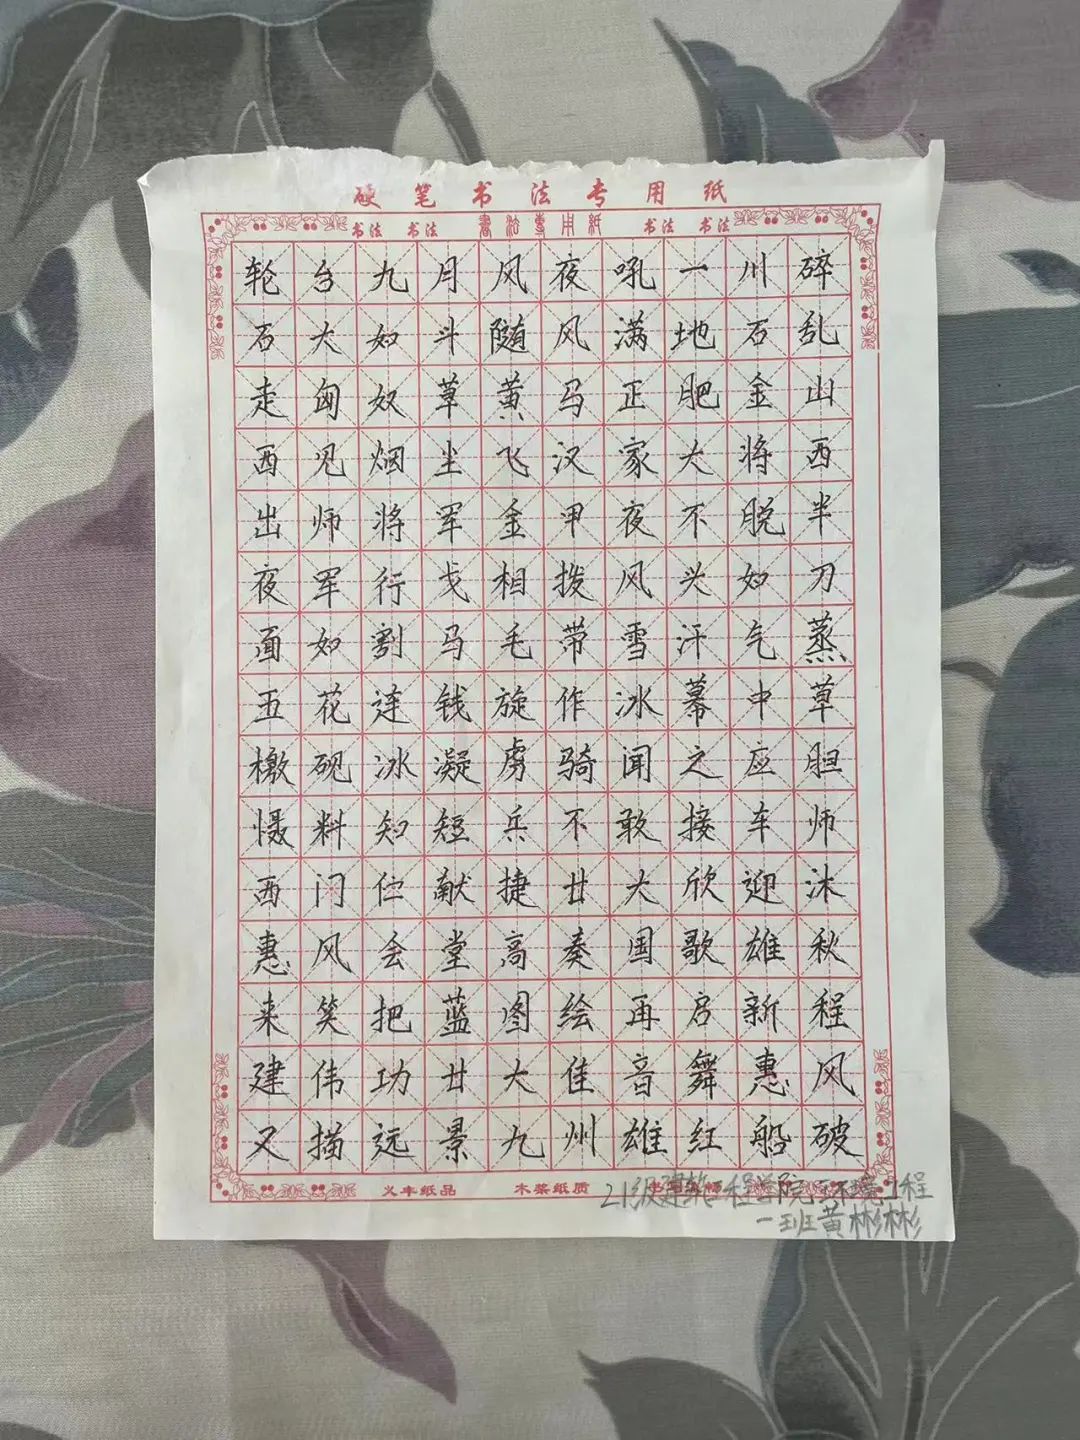 硬笔书法专用纸
书法 书法 書法專用紙 书法 书法
轮台九月风夜吼一川碎
石大如斗随风满地石乱
走匈奴草黄马正肥金山
西见烟尘飞汉家大将西
出师将军金甲夜不脱半
夜军行戈相拨风头如刀
面如割马毛带雪汗气蒸
五花连钱旋作冰幕中草
檄砚冰凝虏骑闻之应胆
慑料知短兵不敢接车师
西门伫献捷廿大欣迎沐
惠风会堂高奏国歌雄秋
来笑把蓝图绘再启新程
建伟功廿大佳音舞惠风
又描远景九州雄红船破
义丰纸品 木浆纸质
21级建筑工程学院环境工程
一班黄彬彬